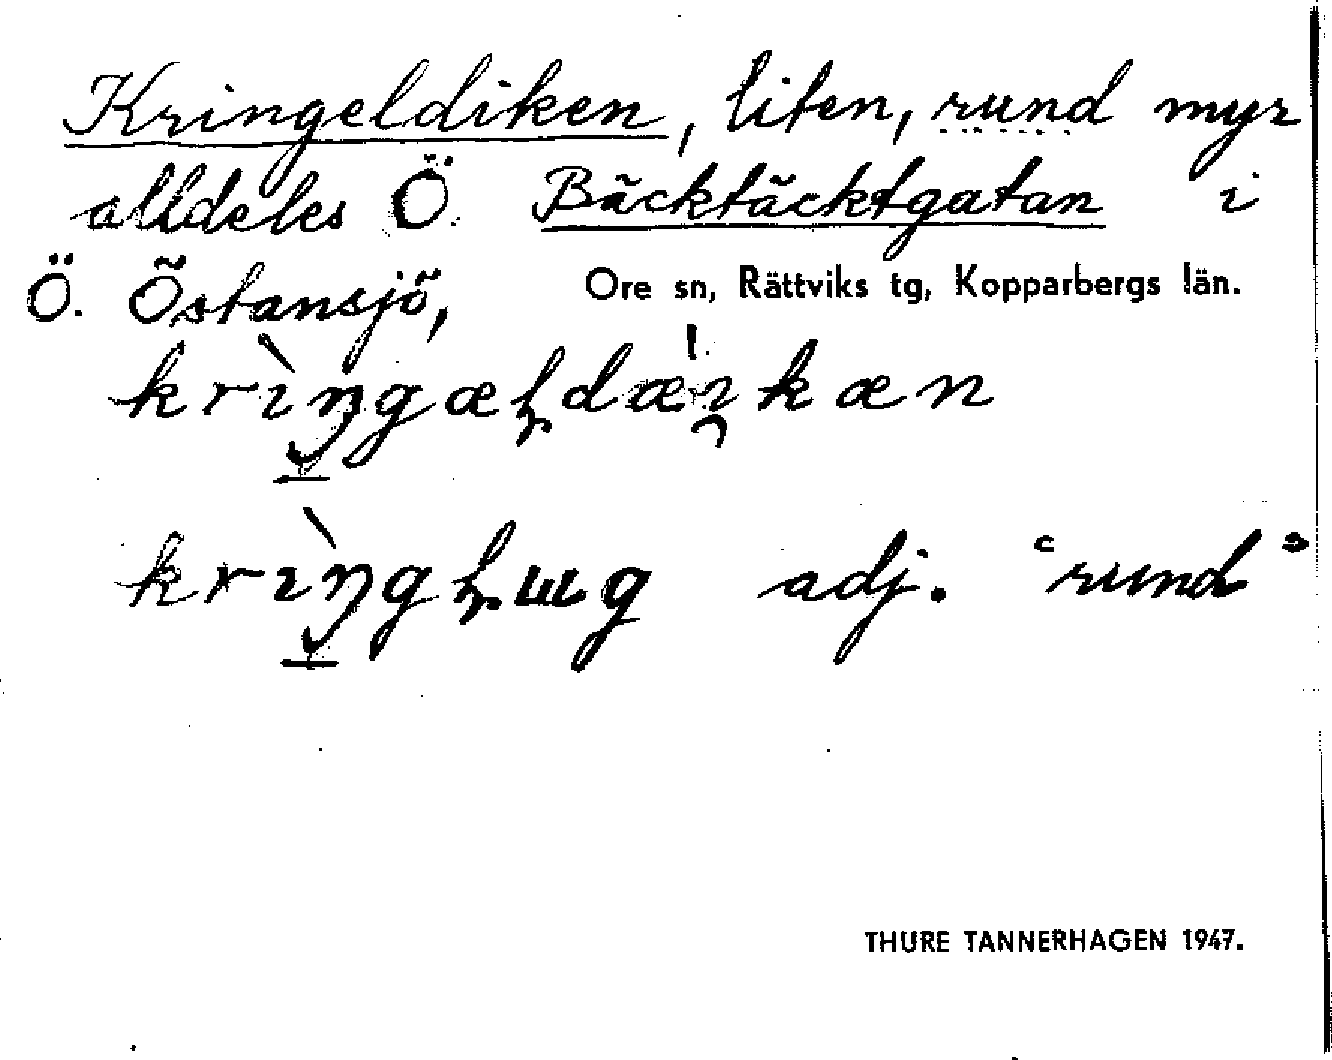 Kringeldiken, liten, rund myr
alldeles Ö. Bäcktäcktgatan i
Ö. Östansjö, Ore sn, Rättviks tg, Kopparbergs län.
adj. "rund"
THURE TANNERHAGEN 1947.